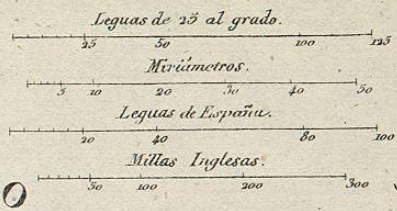 Leguas de 25 al grado.
25 50 100 125
Miriámetros.
5 10 20 30 40 50
Leguas de España.
20 40 80 100
Millas Inglesas.
50 100 200 300
O